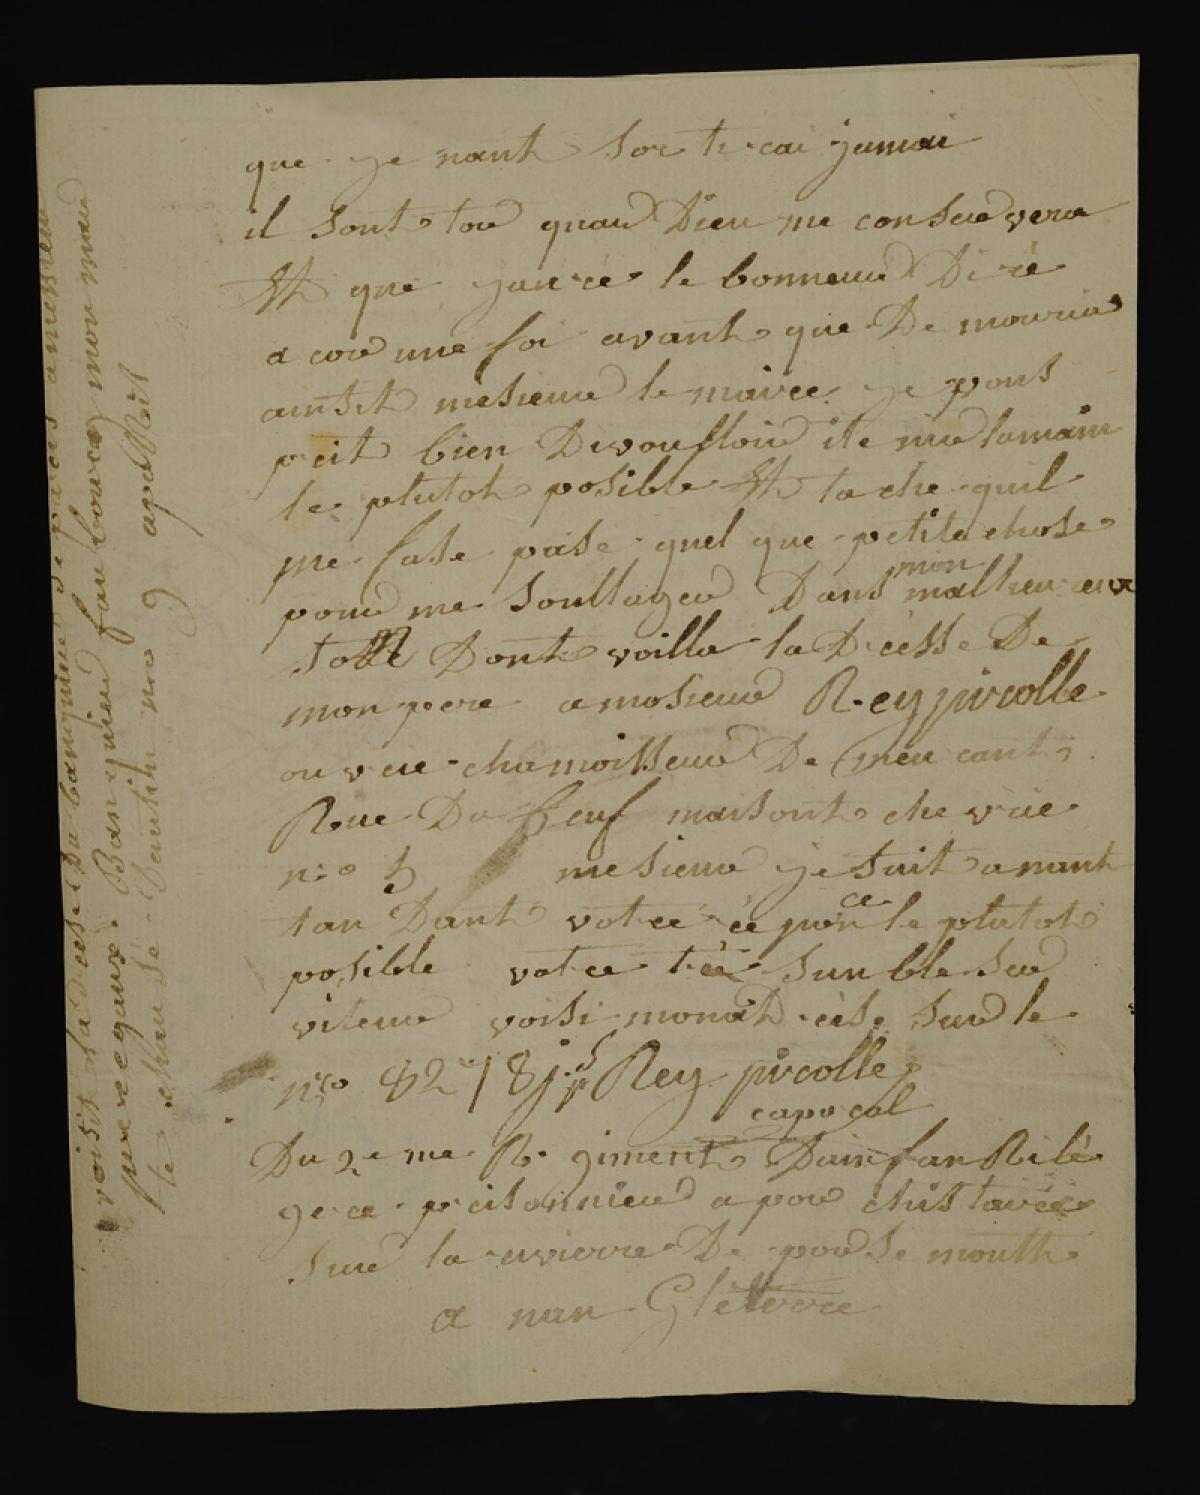 que je nant sortirai jamai
il sont tou quau Dieu me conservera
Et que jaurée le bonneur Di rè
a core une foi avant que De mourir
ainsit mesieur le maire je vous
prit bien De vouslloir ite mu lamain
le plutoh posible Et tache quil
me fase pase quel que petite chose
pour me soullager Dans mon malheureux
Dont voilla la Dresse De
mon pere a mosieur Rey pirolle
ouvrie chamoisseur De
Rue Du beuf maisont che vrie
nro 5 mesieur je suit a nant
tan Dant votre rè ponce le plutoh
posible votre trè sun ble ser
viteur voisi monadreise sur le
nro 8218 jph Rey pirolle
caporal
Du 2eme Regiment Dainfan Rilé
gere prisonnier a por chistairée
sur la rivierre De porse mouth
a nan Gleterre
voisit la drese Du banquier De paris a messieu
pereregaux Banquier fau bourg mon mar
te chausé Dantin nro 9 apaRis